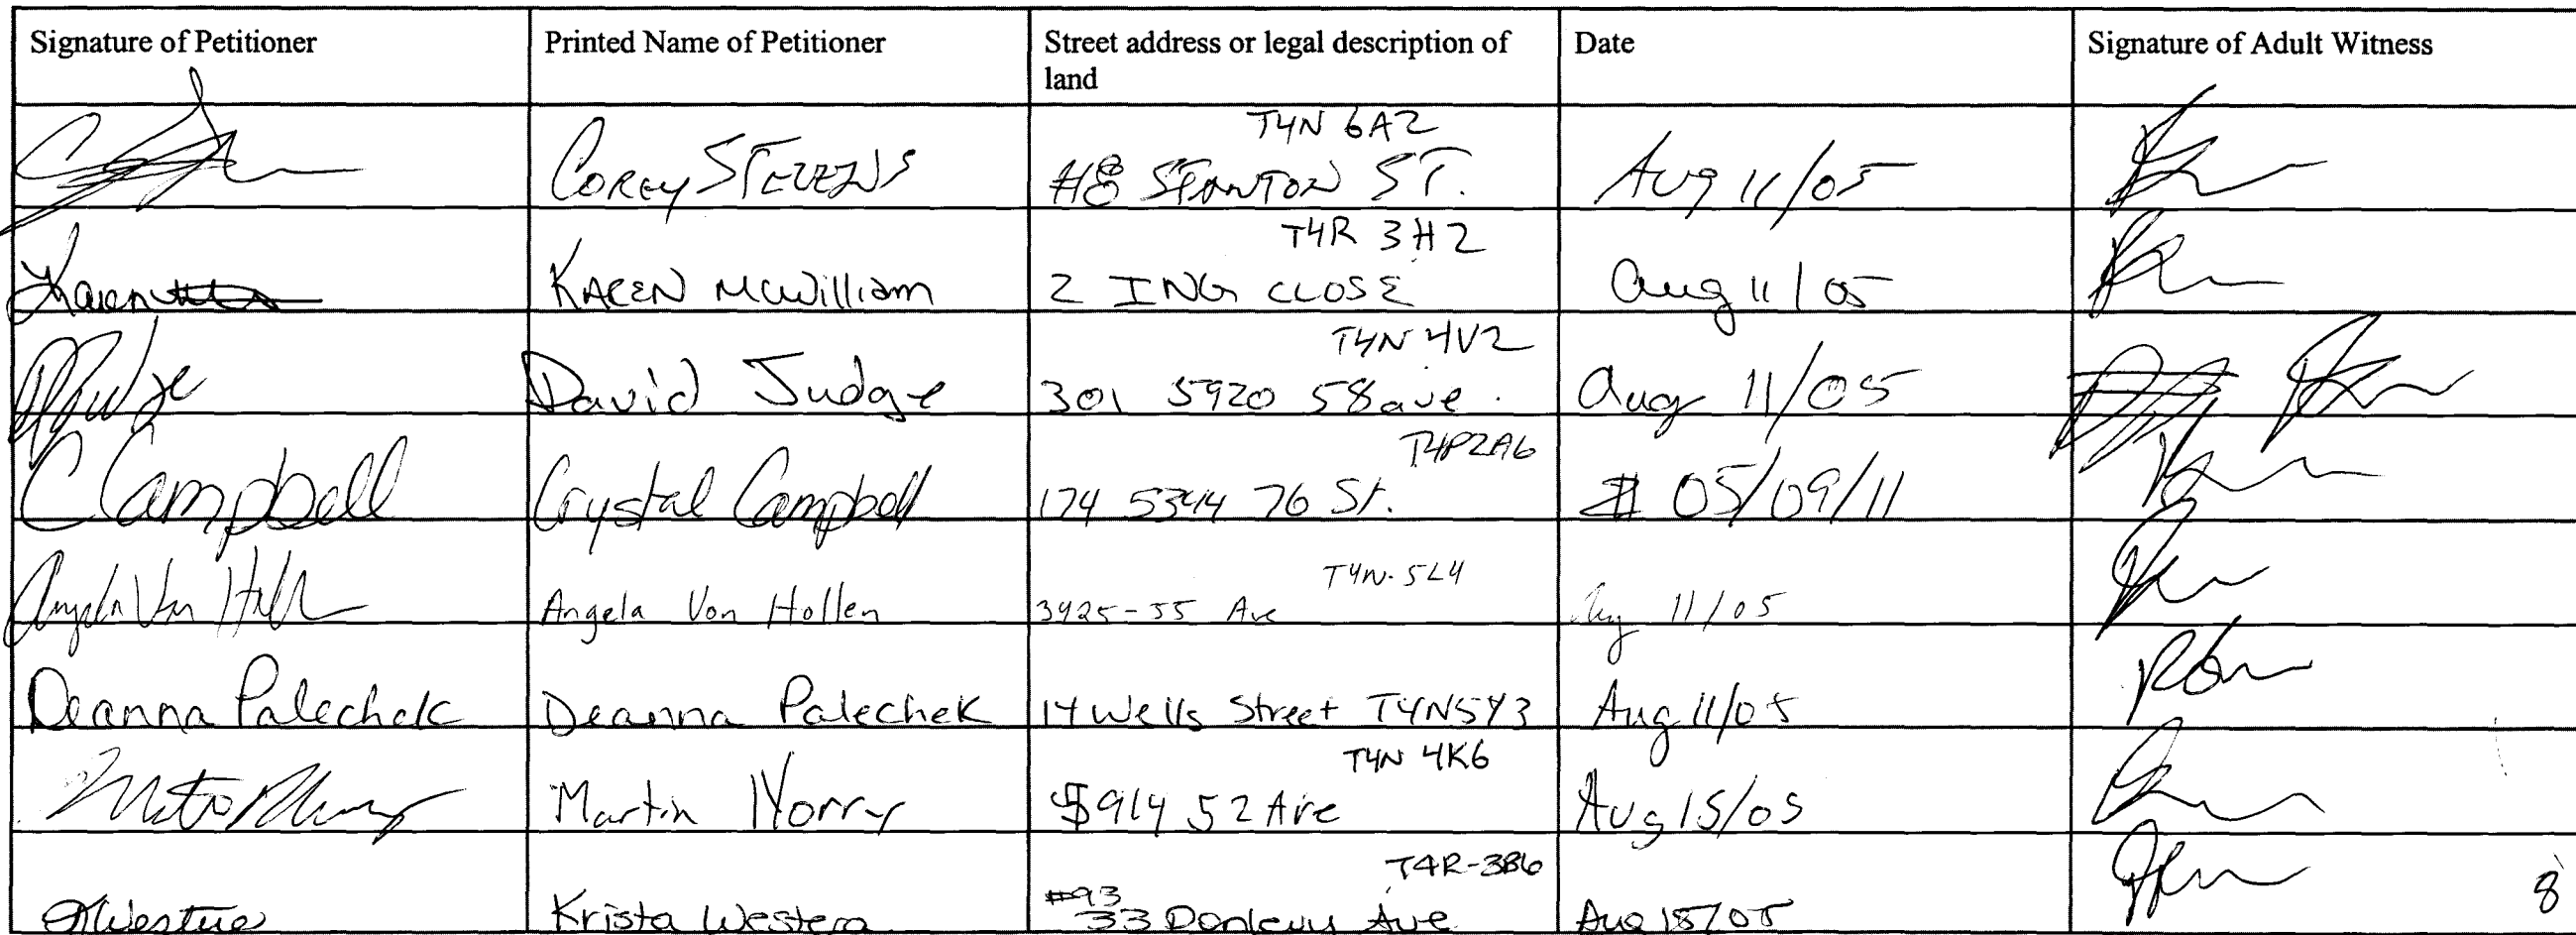 Signature of Petitioner
Printed Name of Petitioner
Street address or legal description of
land
Date
Signature of Adult Witness
COREY STEVENS
T4N 6A2
#8 STANTON ST.
Aug 11/05
Karen
KAREN McWilliam
T4R 3H2
2 ING CLOSE
Aug 11/05
David Judge
T4N 4V2
301 5920 58 ave.
Aug 11/05
C Campbell
Crystal Campbell
T4P2A6
174 5344 76 St.
05/09/11
Angela Von Hollen
Angela Von Hollen
T4N-5L4
3925-55 Ave
Aug 11/05
Deanna Palechek
Deanna Palechek
14 Wells Street T4N5Y3
Aug 11/05
Martin Morry
T4N 4K6
5914 52 Ave
Aug 15/05
KWestera
Krista Westera
T4R-3B6
#93
33 Donlevy Ave.
Aug 15/05
8